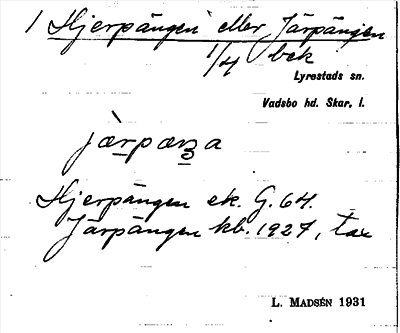 1 Hjerpängen eller Järpängen
1/4 bek
Lyrestads sn.
Vadsbo hd. Skar. l.
jærpæŋa
Hjerpängen ek. G. 64.
Järpängen kb. 1927, tax
L. MADSÉN 1931